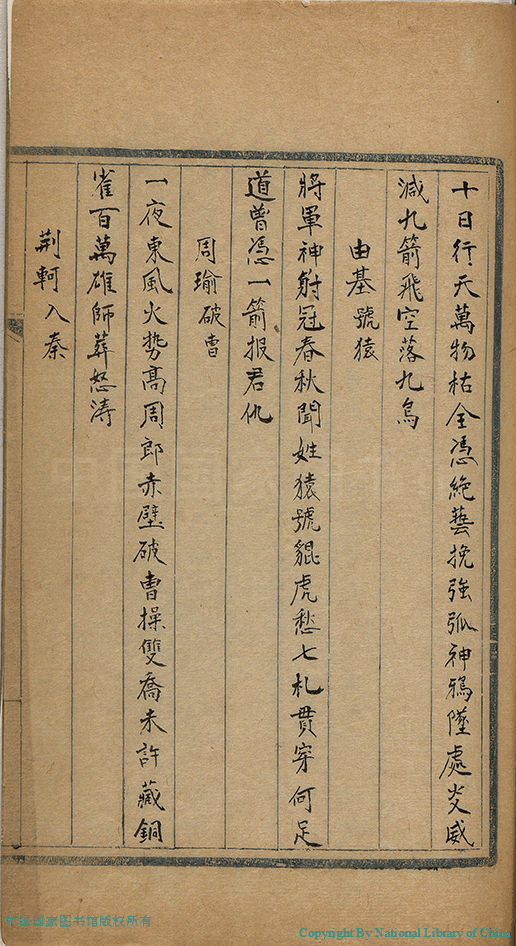 十日行天萬物枯全憑絶藝挽強弧神鴉墮處炎威
減九箭飛空落九烏
由基號猿
將軍神射冠春秋聞姓猿號貔虎愁七札貫穿何足
道曾憑一箭报君仇
周瑜破曹
一夜東風火势高周郎赤壁破曹操雙喬未許藏銅
雀百萬雄師葬怒涛
荆軻入秦
中国国家图书馆版权所有
Copyright By National Library of China